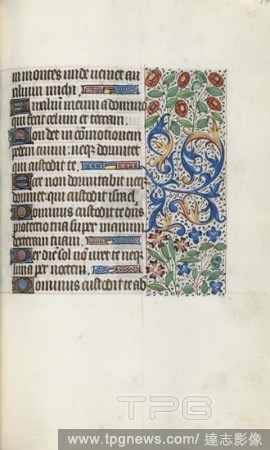 in montes unde veniet au
xilium michi
Auxilium meum a domino
qui fecit celum et terram.
Non det in comotionem
pedem tuum: neqz dormitet
qui custodit te.
Ecce non dormitabit neqz
dormiet qui custodit israel.
Dominus custodit te dns
protectio tua super manu
dexteram tuam.
Per diem sol non uret te neqz
luna per noctem.
Dominus custodit te ab
TPG
www.tpgnews.com/達志影像